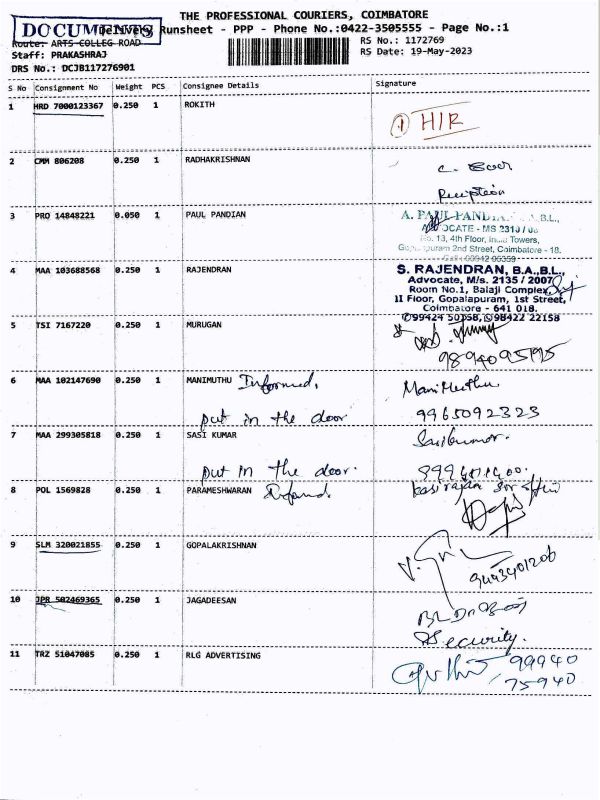 THE PROFESSIONAL COURIERS, COIMBATORE
DOCUMENTS
Delivery Runsheet - PPP - Phone No.:0422-3505555 - Page No.:1
Route: ARTS COLLEG ROAD
RS No.: 1172769
Staff: PRAKASHRAJ
RS Date: 19-May-2023
DRS No.: DCJB117276901
S No Consignment No Weight PCS Consignee Details Signature
1 HRD 7000123367 0.250 1 ROKITH
1 H/R
2 CMM 806208 0.250 1 RADHAKRISHNAN
Reception
3 PRO 14848221 0.050 1 PAUL PANDIAN
A. PAUL PANDIA B.L.,
ADVOCATE - MS 2310 /
No. 13, 4th Floor, Towers,
2nd Street, Coimbatore - 18.
4 MAA 103688568 0.250 1 RAJENDRAN
S. RAJENDRAN, B.A.,B.L.,
Advocate, M/s. 2135 / 2007
Room No.1, Balaji Complex
II Floor, Gopalapuram, 1st Street,
Coimbatore - 641 018.
99424 50158, 98422 22158
5 TSI 7167220 0.250 1 MURUGAN
9894095195
6 MAA 102147690 0.250 1 MANIMUTHU Informed, Manimuthu
put in the door 9965092323
7 MAA 299305818 0.250 1 SASI KUMAR Sasikumar.
put in the door.
8 POL 1569828 0.250 1 PARAMESHWARAN
9 SLM 320021855 0.250 1 GOPALAKRISHNAN
9443401206
10 JPR 502469365 0.250 1 JAGADEESAN
Security.
11 TRZ 51047085 0.250 1 RLG ADVERTISING
99940
75940